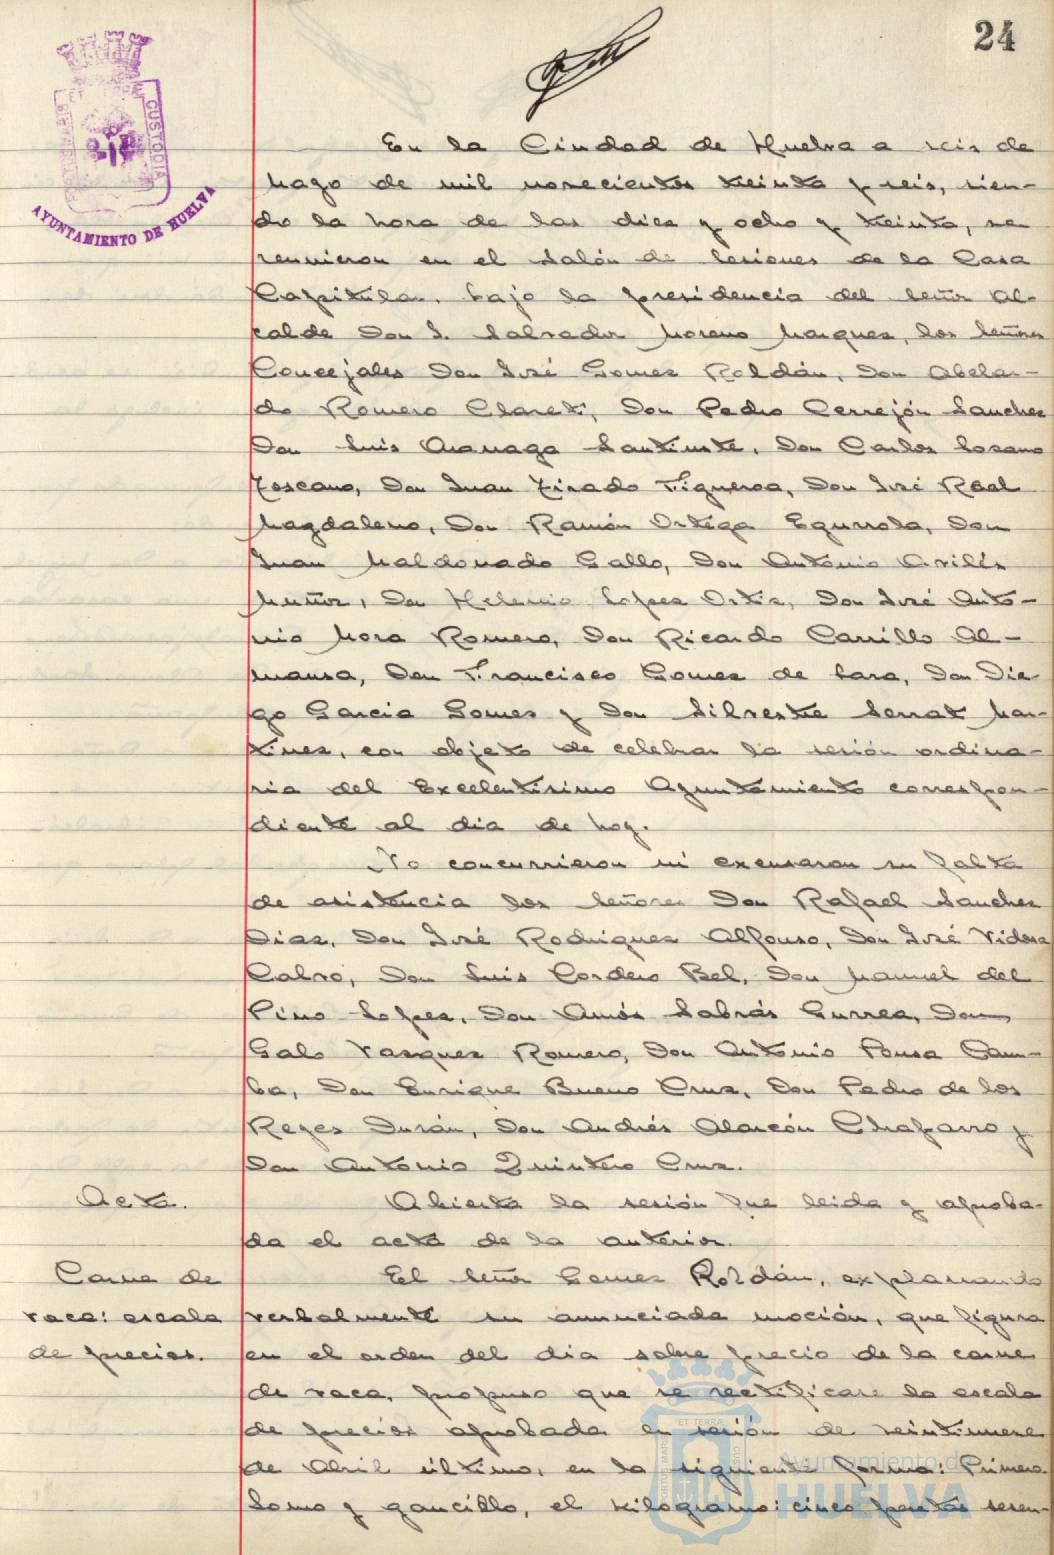 24
PORTUS MARIS ET TERRAE CUSTODIA
AYUNTAMIENTO DE HUELVA
En la Ciudad de Huelva a seis de
Mayo de mil novecientos treinta y seis, sien-
do la hora de las diez y ocho y treinta, se
reunieron en el Salón de Sesiones de la Casa
Capitular, bajo la presidencia del Señor Al-
calde Don S. Salvador Moreno Marquez, los Señores
Concejales Don José Gomez Roldán, Don Abelar-
do Romero Claret, Don Pedro Cerrejón Sanchez
Don Luis Don Carlos Lozano
Toscano, Don Juan Tirado Figueroa, Don José Real
Magdaleno, Don Ramón Ortega Egurrola, Don
Juan Maldonado Gallo, Don Antonio Avilés
Muñoz, Don Helenio Lopez Ortiz, Don José Anto-
nio Mora Romero, Don Ricardo Carrillo Al-
mansa, Don Francisco Gomez de Lara, Don Die-
go Garcia Gomez y Don Silvestre Serrat Mar-
tinez, con objeto de celebrar la sesión ordina-
ria del Excelentísimo Ayuntamiento correspon-
diente al dia de hoy.
No concurrieron ni excusaron su falta
de asistencia los Señores Don Rafael Sanchez
Diaz, Don José Rodriguez Alfonso, Don José Vidosa
Calvo, Don Luis Cordero Bel, Don Manuel del
Pino Lopez, Don Amós Sabrás Gurrea, Don
Galo Vazquez Romero, Don Antonio Pousa Cam-
ba, Don Enrique Bueno Cruz, Don Pedro de los
Reyes Durán, Don Andrés Alarcón Chaparro y
Don Antonio Quintero Cruz.
Acta.
Abierta la sesión fue leida y aproba-
da el acta de la anterior.
Carne de
vaca: escala
de precios.
El Señor Gomez Roldán, explanando
verbalmente su anunciada moción, que figura
en el orden del dia sobre precio de la carne
de vaca, propuso que se rectificase la escala
de precios aprobada en sesión de veintinueve
de Abril último, en la siguiente forma: Primera
Lomo y gancillo, el kilogramo: cinco pesetas seten-
PORTUS MARIS ET TERRAE CUSTODIA
Ayuntamiento de
HUELVA